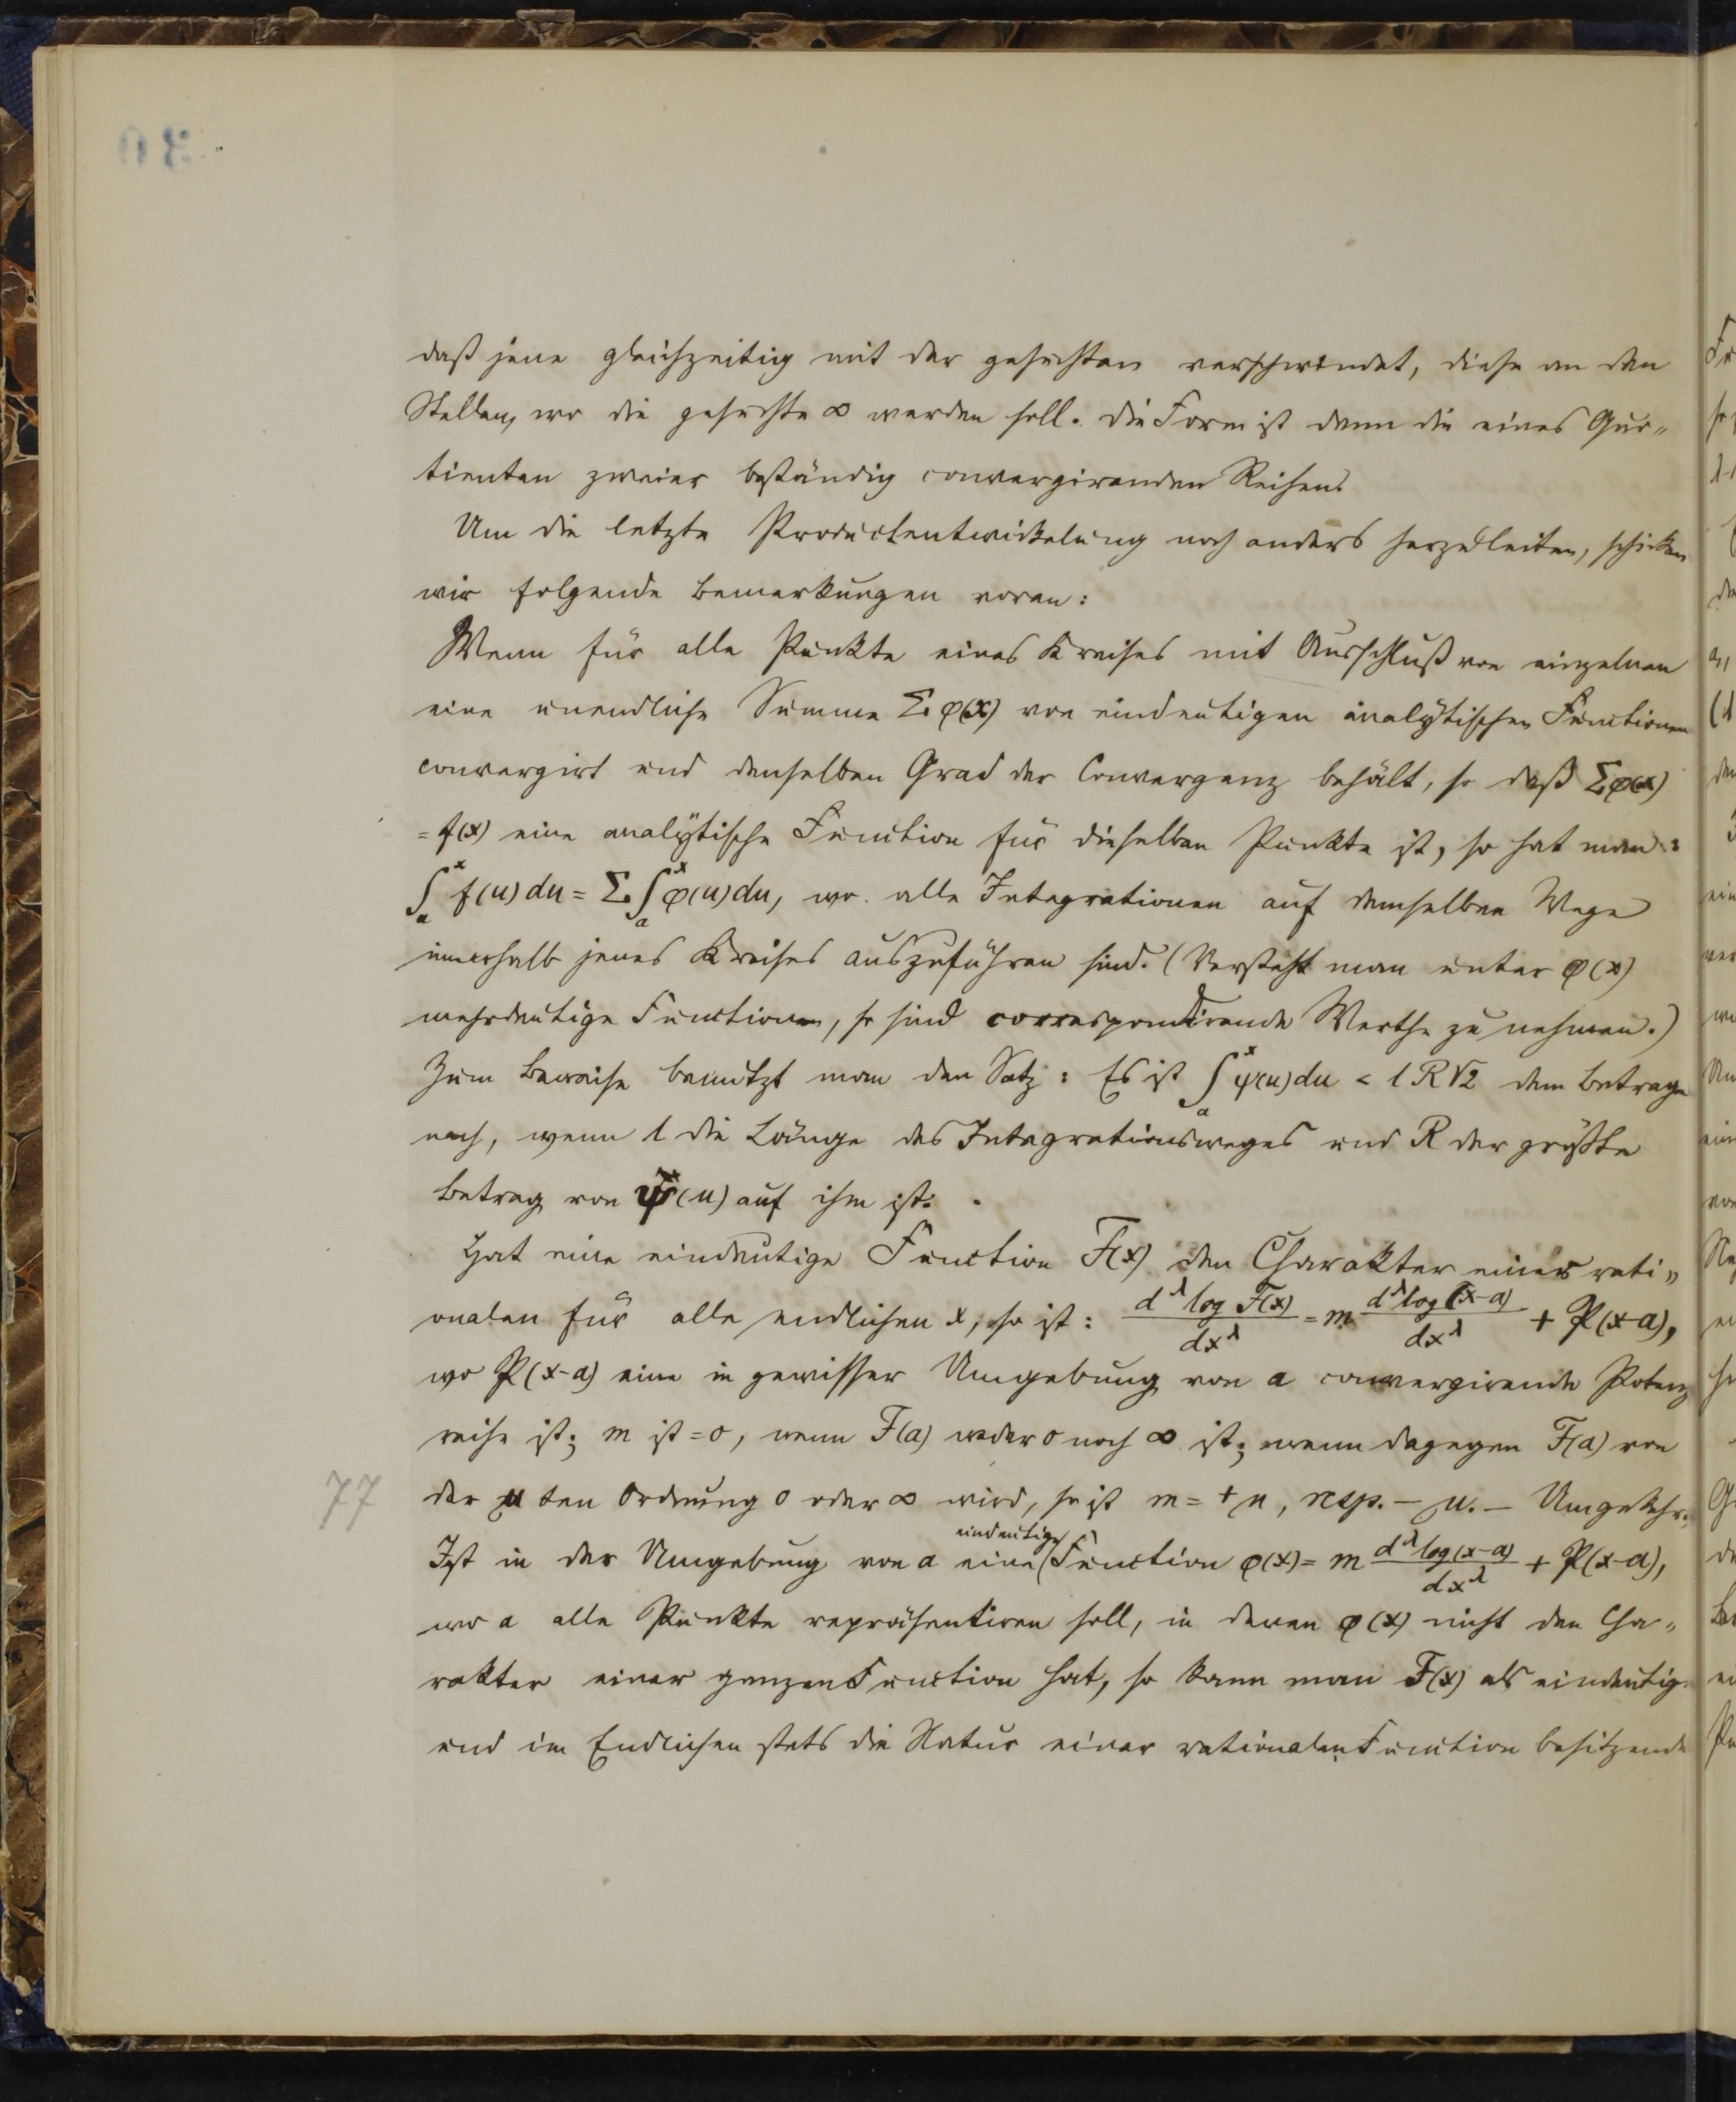 daß jene gleichzeitig mit der gesuchten verschwindet, diese an den
Stellen, wo die gesuchte ∞ werden soll. Die Form ist dann die eines Quo„
tienten zweier beständig convergirenden Reihen.
Um die letzte Productentwickelung noch anders herzuleiten, schicken
wir folgende Bemerkungen voran:
Wenn für alle Punkte eines Kreises mit Ausschluß von einzelnen
eine unendliche Summe Σφ(x) von eindeutigen analytischen Functionen
convergirt und denselben Grad der Convergenz behält, so daß Σφ(x)
= f(x) eine analytische Function für dieselben Punkte ist, so hat man:
∫ₐˣ f(u)du = Σ∫ₐˣ φ(u)du, wo alle Integrationen auf demselben Wege
innerhalb jenes Kreises auszuführen sind. (Versteht man unter φ(x)
mehrdeutige Functionen, so sind correspondirende Werthe zu nehmen.)
Zum Beweise benutzt man den Satz: Es ist ∫ₐˣ ψ(u)du < l R √2 dem Betrage
nach, wenn l die Länge des Integrationsweges und R der größte
Betrag von ψ(u) auf ihm ist.
Hat eine eindeutige Function F(x) den Charakter einer rati„
onalen für alle endlichen x, so ist: d^λ log F(x)/dx^λ = m d^λ log(x-a)/dx^λ + P(x-a),
wo P(x-a) eine in gewisser Umgebung von a convergirende Potenz
reihe ist; m ist = 0, wenn F(a) weder 0 noch ∞ ist; wenn dagegen F(a) von
der μ ten Ordnung 0 oder ∞ wird, so ist m = + μ, resp. – μ. – Umgekehrt:
Ist in der Umgebung von a eine eindeutige Function φ(x) = m d^λ log(x-a)/dx^λ + P(x-a),
wo a alle Punkte repräsentiren soll, in denen φ(x) nicht den Cha„
rakter einer ganzen Function hat, so kann man F(x) als eindeutig
77
und im Endlichen stets die Natur einer rationalen Function besitzende